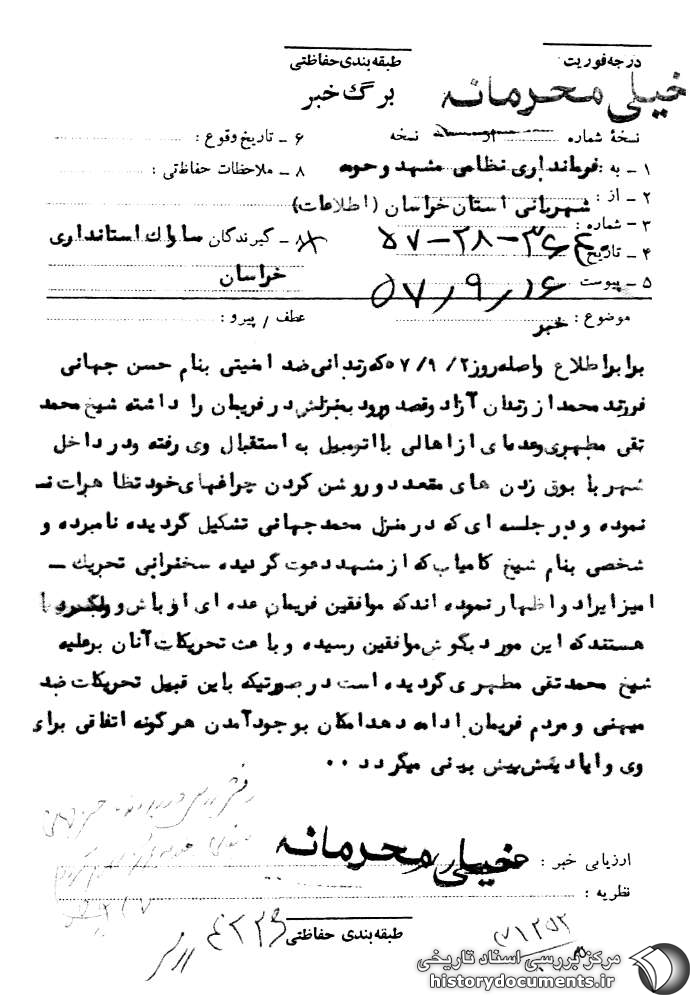 درجه فوریت
طبقه بندی حفاظتی
خیلی محرمانه
برگ خبر
نسخهٔ شماره از نسخه
۱ ـ به : فرمانداری نظامی مشهد و حومه
۲ ـ از : شهربانی استان خراسان (اطلاعات)
۳ ـ شماره :
۴ ـ تاریخ
۵ ـ پیوست
۵۷/۹/۱۶
۶ ـ تاریخ وقوع :
۸ ـ ملاحظات حفاظتی :
ـ گیرندگان ساواك استانداری
خراسان
موضوع : خبر
عطف / پیرو :
برابر اطلاع واصله روز ۵۷/۹/۲ که زندانی ضد امنیتی بنام حسن جهانی
فورتد محمد از زندان آزاد وقصد ورود بمنزلش در فریمان را داشته شیخ محمد
تقی مطهری وعده ای از اهالی با اتومبیل به استقبال وی رفته ودر داخل
شهر با بوق زدن های متعدد و روشن کردن چراغهای خود تظاهرات
نموده و در جلسه ای که در منزل محمد جهانی تشکیل گردیده نامبرده و
شخصی بنام شیخ کامیاب که از مشهد دعوت گردیده سخنرانی تحریك ـ
امیز ایراد و اظهار نموده اند که موافقین فریمان عده ای اوباش و
هستند که این مورد بگوش موافقین رسیده و باعث تحریکات آنان برعلیه
شیخ محمد تقی مطهری گردیده است در صورتیکه باین قبیل تحریکات ضد
میهنی و مردم فریمان ادامه دهد امکان بوجود آمدن هرگونه اتفاقی برای
وی و ایادیش پیش بینی میگردد ۰۰
خیلی محرمانه
ارزیابی خبر :
نظریه :
طبقه بندی حفاظتی
مرکز بررسی اسناد تاریخی
historydocuments.ir